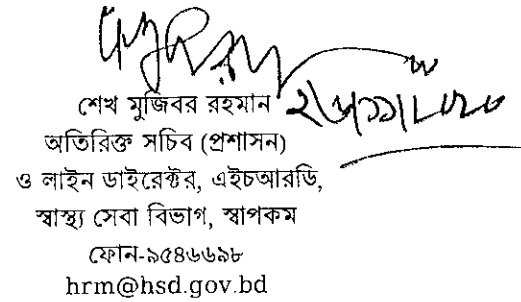 শেখ মুজিবর রহমান
অতিরিক্ত সচিব (প্রশাসন)
ও লাইন ডাইরেক্টর, এইচআরডি,
স্বাস্থ্য সেবা বিভাগ, স্বাপকম
ফোন-৯৫৪৬৬৯৮
hrm@hsd.gov.bd